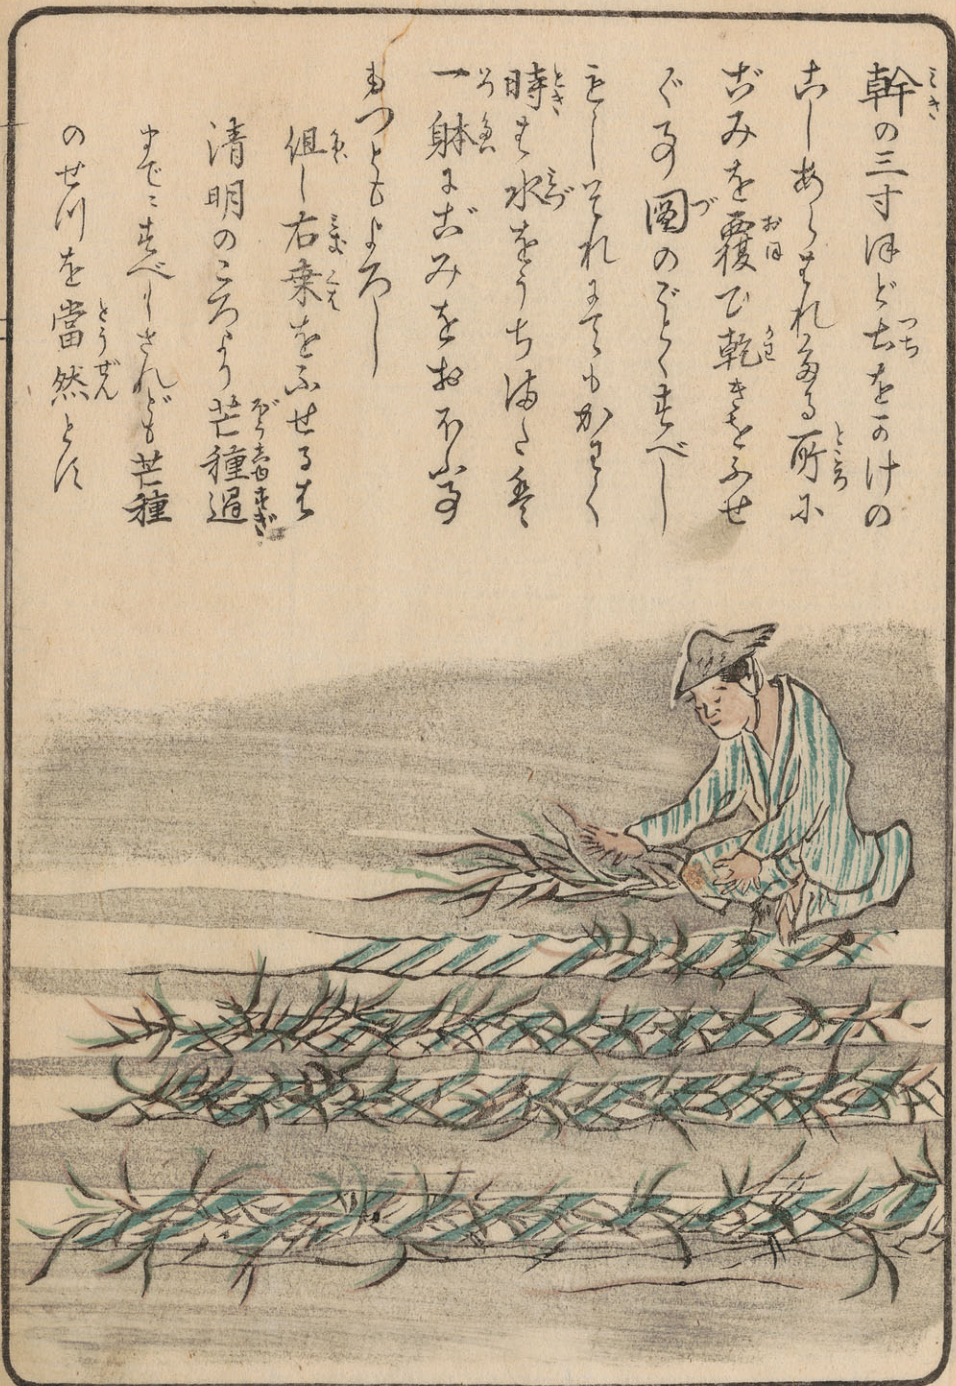 幹の三寸ほど土をかけの
こしあらはれたる所に
ごみを覆ひ乾きをふせ
ぐ事圖のごとくすべし
もしそれにてもかわく
時は水をうち
一躰にごみをおほふ事
もつともよろし
但し右桑をふせるは
清明のころより芒種過
までにすべしされども芒種
のせつを當然とす